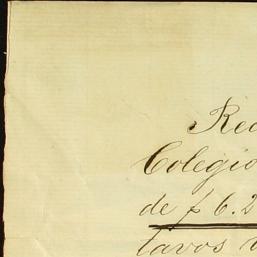 Rec
Colegio
de $ 6.2
tavos